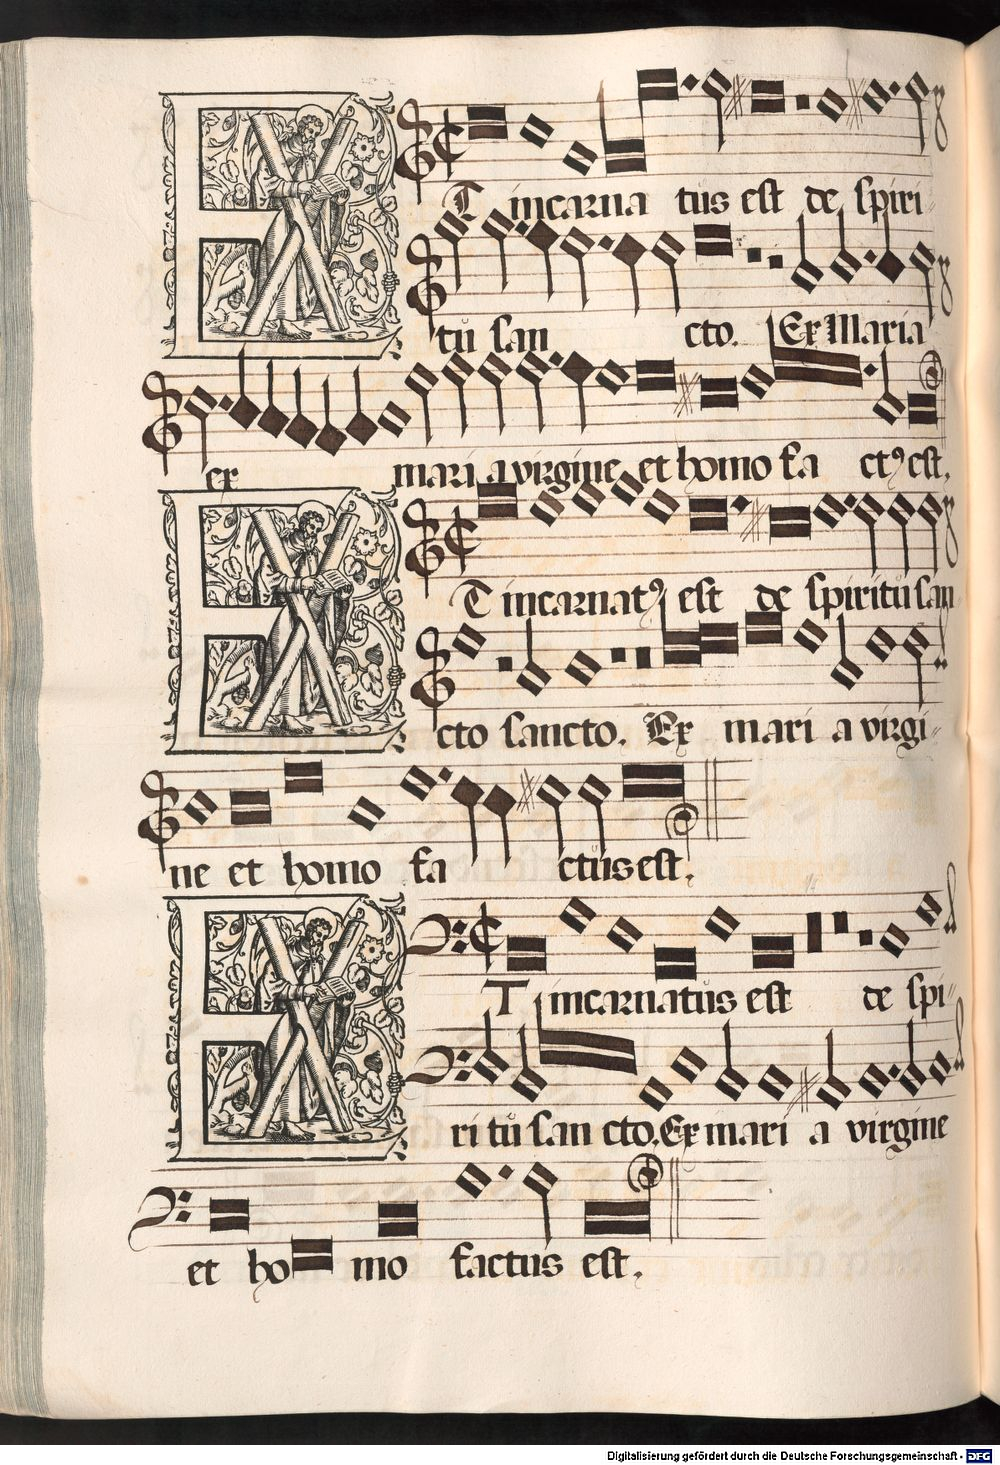 ET incarna tus est de spiri-
tu san cto. Ex Maria
ex maria virgine et homo fa ctꝰ est.
ET incarnatꝰ est de spiritu san-
cto sancto. Ex mari a virgi-
ne et homo fa ctus est.
ET incarnatus est de spi-
ritu san cto. Ex mari a virgine
et ho mo factus est.
Digitalisierung gefördert durch die Deutsche Forschungsgemeinschaft - DFG